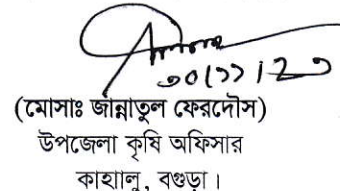 ৩০/১১/২৩
(মোসাঃ জান্নাতুল ফেরদৌস)
উপজেলা কৃষি অফিসার
কাহালু, বগুড়া।